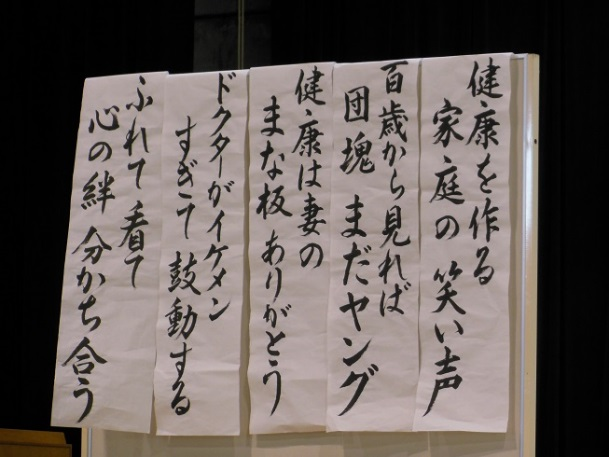 健康を作る
家庭の 笑い声
百歳から見れば
団塊 まだヤング
健康は妻の
まな板 ありがとう
ドクターがイケメン
すぎて 鼓動する
ふれて 看て
心の絆 分かち合う